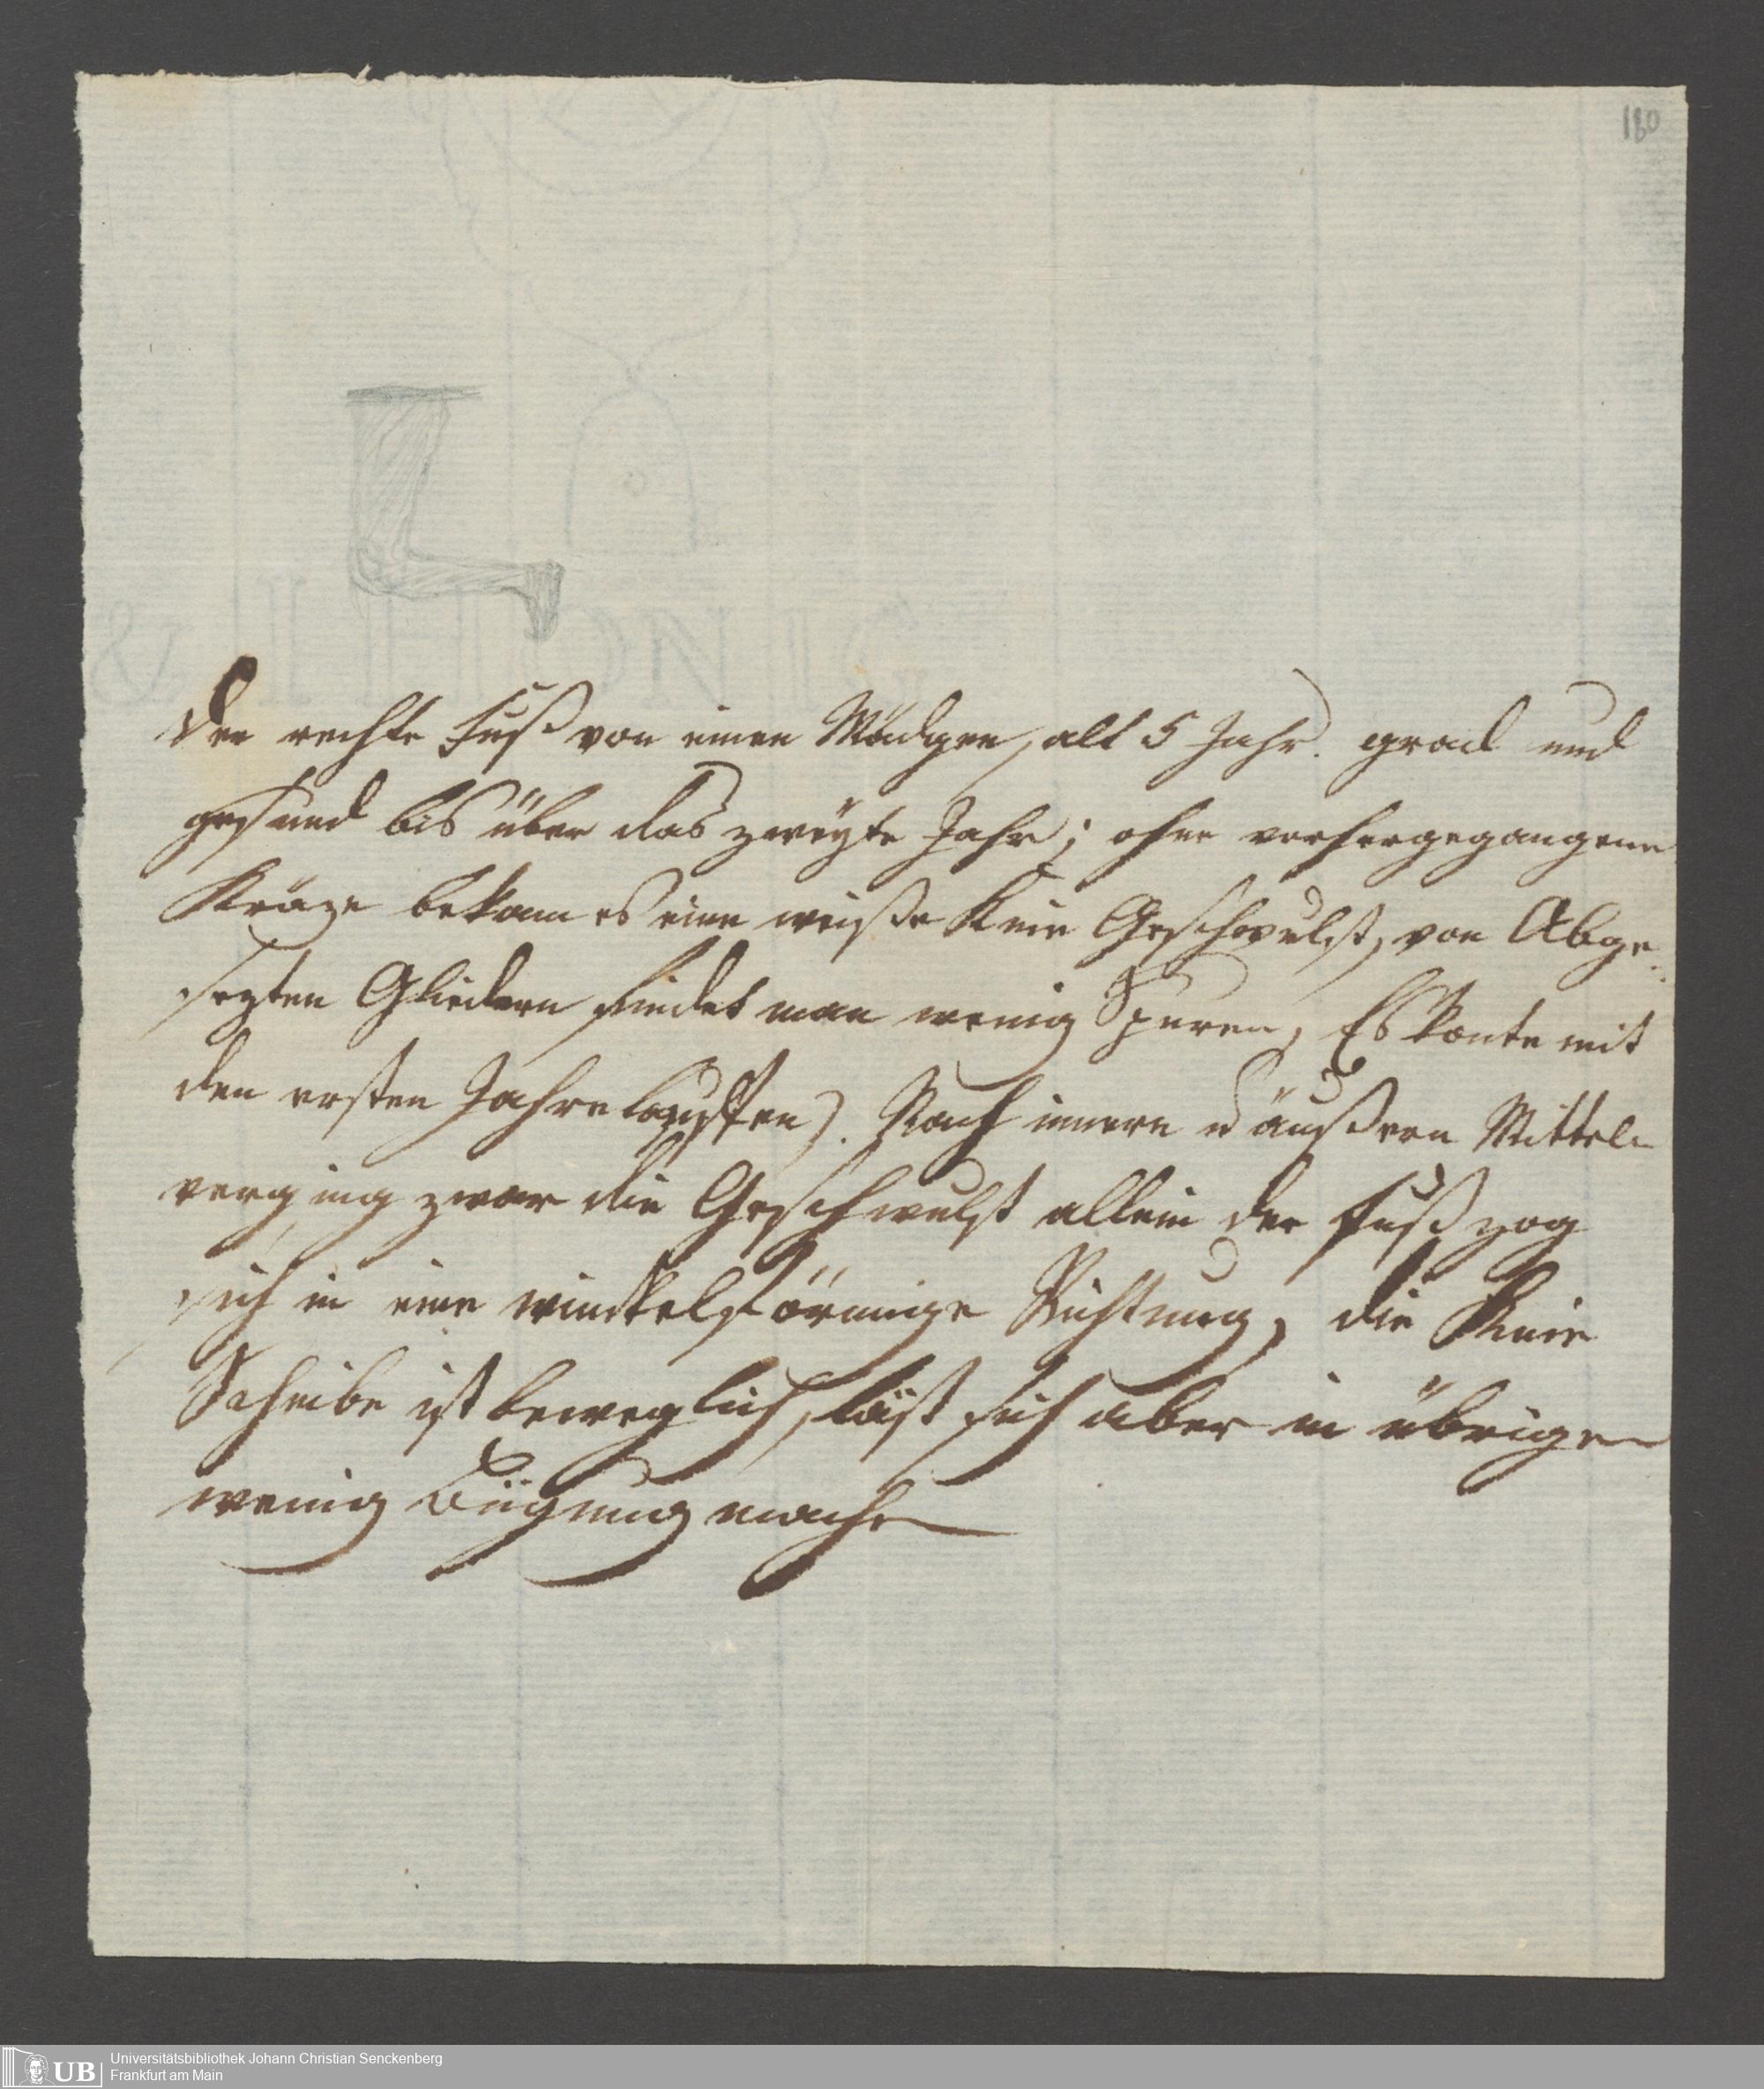 180
Der rechte Fuß von einen Mädgen, alt 5 Jahr. grad und
gesund bis über das zweyte Jahr; ohne vorhergegangene
Kräze bekam es eine weiße Knie Geschwulst, von Abge-
sezten Gliedern findet man wenig Spuren, Es konte mit
den ersten Jahre lauffen). Nach innern u äußeren Mitteln
verging zwar die Geschwulst allein der Fuß zog
sich in eine winckelförmige Richtung, die Knie
Scheibe ist beweglich, läst sich aber in übrigen
wenig Biegung machen
UB
Universitätsbibliothek Johann Christian Senckenberg
Frankfurt am Main